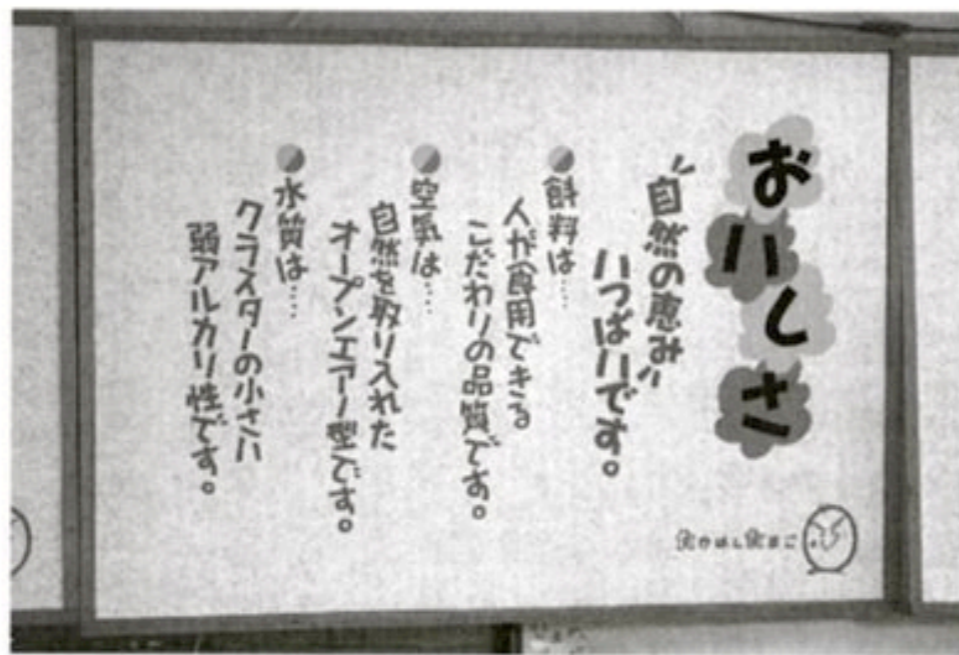 おいしさ
"自然の恵み"
いっぱいです。
●飼料は……
人が食用できる
こだわりの品質です。
●空気は……
自然を取り入れた
オープンエアー型です。
●水質は……
クラスターの小さい
弱アルカリ性です。